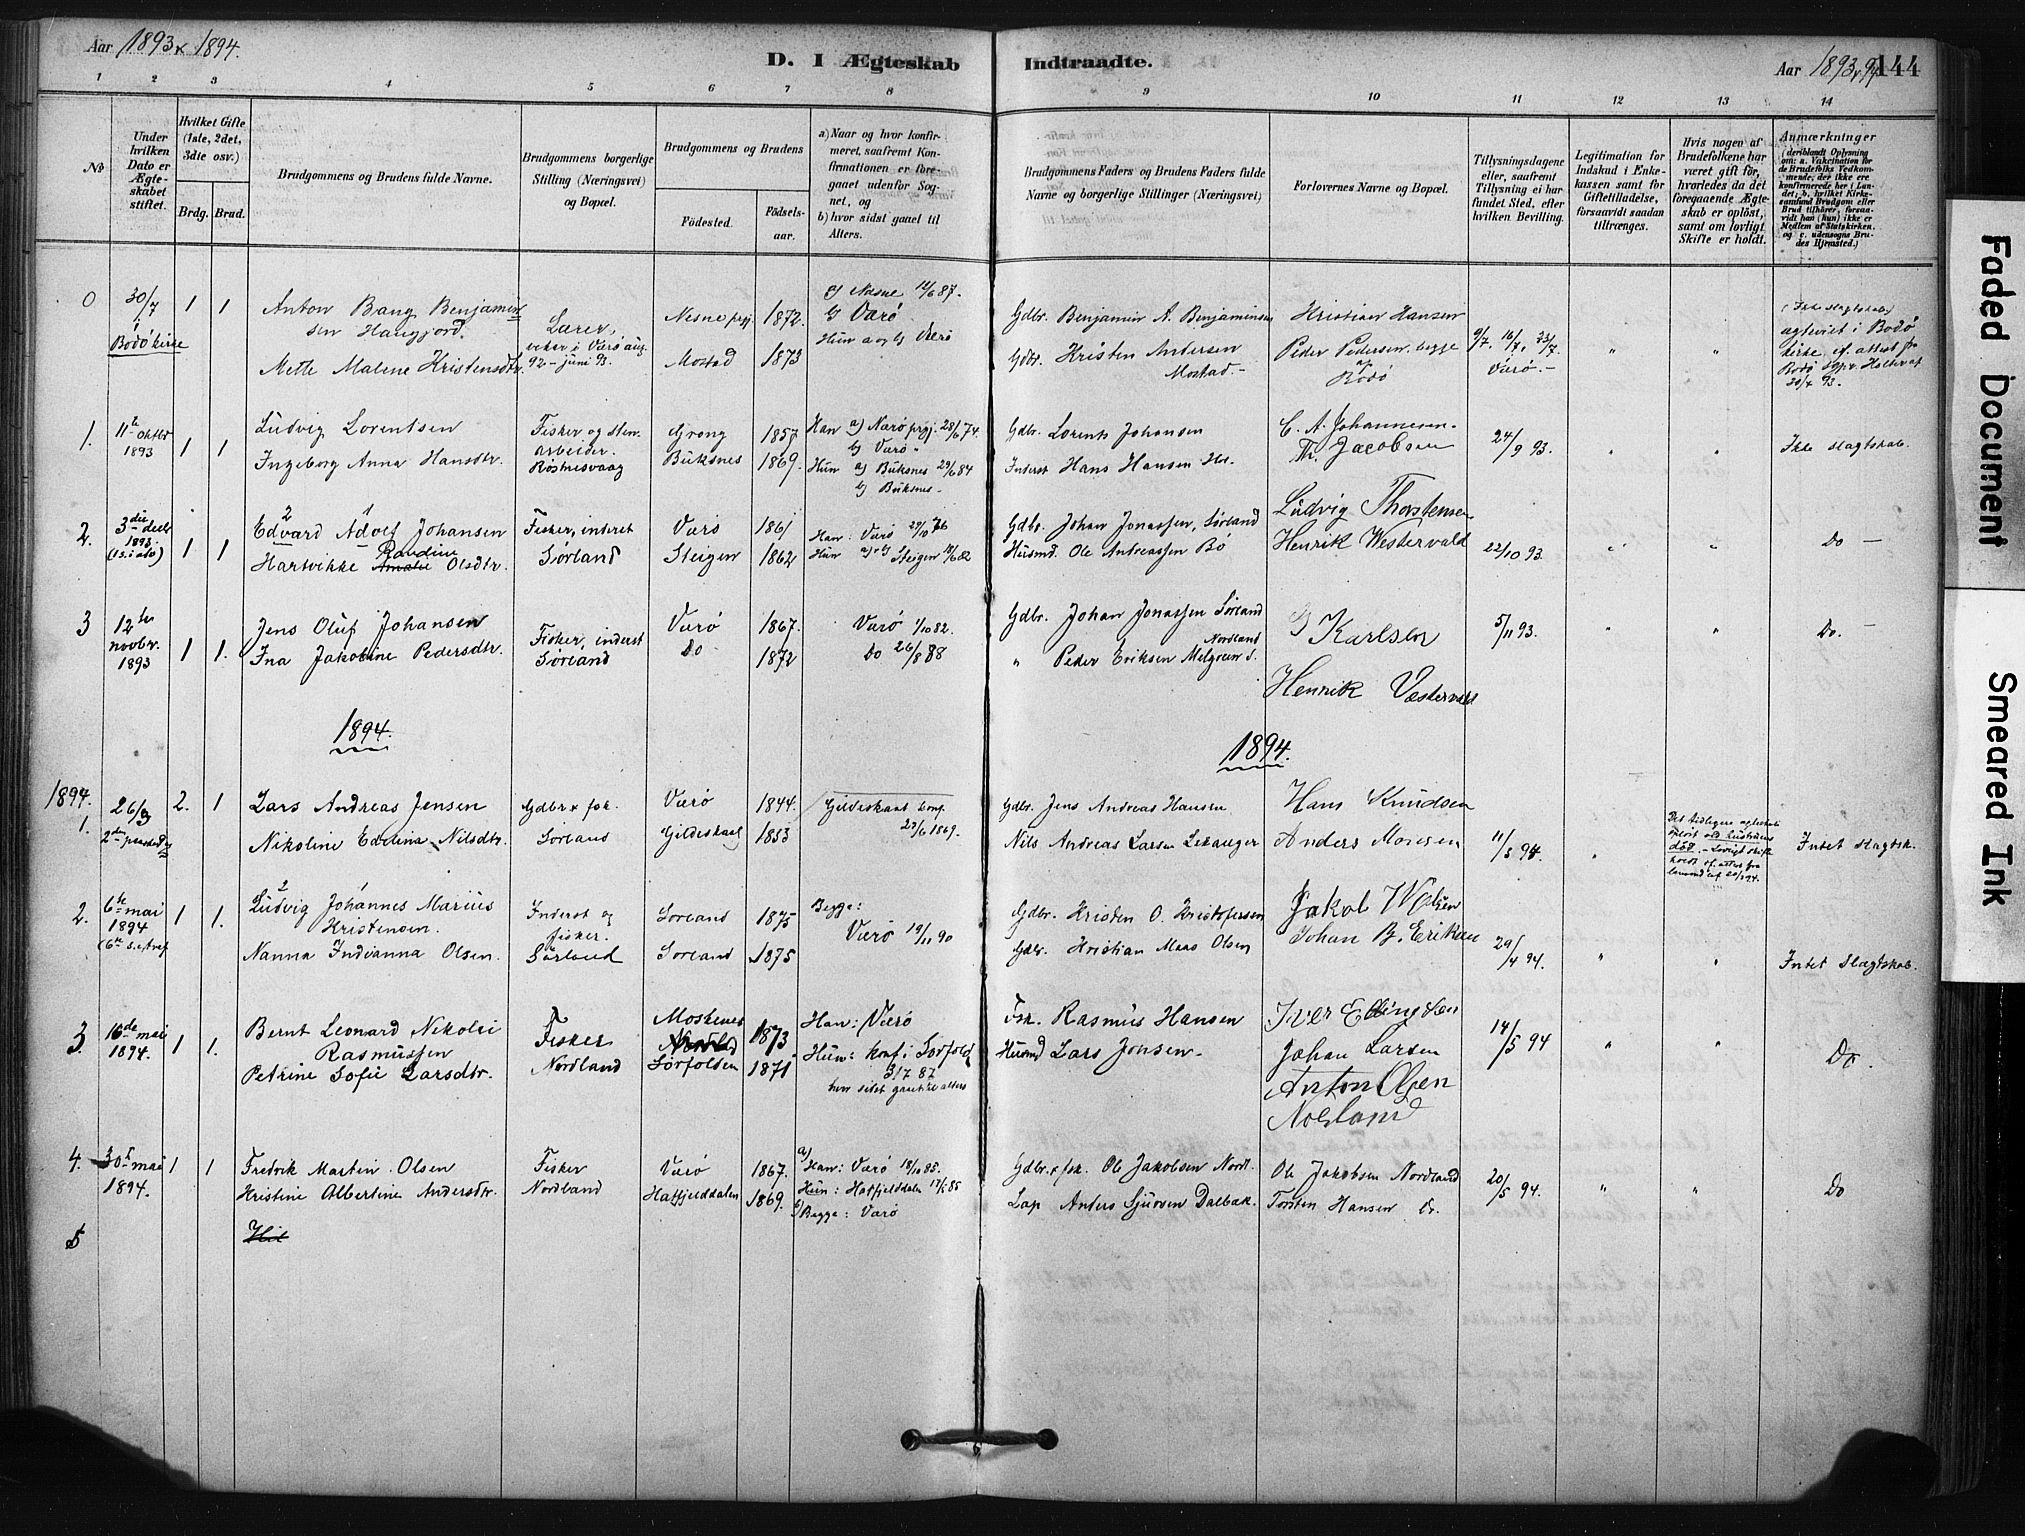 Aar 1893 & 1894.
D. I Ægteskab Indtraadte.
Aar 1893 & 94
144
1 2 3 4 5 6 7 8 9 10 11 12 13 14
No
Under hvilken Dato er Ægteskabet stiftet.
Hvilket Gifte (1ste, 2det, 3die osv.)
Brdg. Brud.
Brudgommens og Brudens fulde Navne.
Brudgommens borgerlige Stilling (Næringsvei) og Bopæl.
Brudgommens og Brudens
Födested.
Födselsaar.
a) Naar og hvor konfirmeret, saafremt Konfirmationen er foregaaet udenfor Sognet, og
b) hvor sidst gaaet til Alters.
Brudgommens Faders og Brudens Faders fulde Navne og borgerlige Stillinger (Næringsvei)
Forlovernes Navne og Bopæl.
Tillysningsdagene eller, saafremt Tillysning ei har fundet Sted, efter hvilken Bevilling.
Legitimation for Indskud i Enkekassen samt for Giftetilladelse, forsaavidt saadan tiltrænges.
Hvis nogen af Brudefolkene har været gift för, hvorledes da det foregaaende Ægteskab er oplöst, samt om lovligt Skifte er holdt.
Anmærkninger
(deriblandt Oplysning om: a. Vakcination for de Brudefolks Vedkommende, der ikke ere konfirmerede her i Landet; b. hvilket Kirkesamfund Brudgom eller Brud tilhörer, forsaavidt han (hun) ikke er Medlem af Statskirken. og c. udensogns Brudes Hjemsted.)
0 30/7 Bodö kirke 1 1
Anton Bang Benjaminsen Haugjord.
Mette Malene Kristensdtr.
Lærer,
92 – juni 93.
Nesne pgj. 1872.
Mostad 1873
a) Nesne 12/6 87.
b) Værö
Hun a og b Værö
Gdbr. Benjamin A. Benjaminsen
Gdbr. Kristen Andersen Mostad.
Kristian Hansen
Peder Pedersen, begge
Rödö
9/7. 16/7, 23/7. Værö.
" "
(Ikke slagtskab)
agteviet i Bodö kirke, cf. attest fra Bodö
1. 11te oktbr 1893 1 1
Ludvig Lorentsen
Ingeborg Anna Hansdtr.
Fisker og stenarbeider. Röstnesvaag
Grong 1857
Buksnes 1869.
Han a) Nærö prgj. 28/6 74.
b) Værö
Hun a) Buksnes 29/6 84
b) Buksnes
Gdbr. Lorents Johansen
Inderst Hans Hansen
C. A. Johannesen
Th. Jacobsen
24/9 93.
" "
Ikke slagtskab.
2. 3die decbr 1893. 1 1
2 1
Edvard Adolf Johansen
Hartvikke Randine Amalie Olsdtr.
Fisker, inderst Sörland
Værö 1861
Steigen 1862
Han: Værö 29/10 76
Hun a) & b) Steigen
Gdbr. Johan Jonassen, Sörland
Husmd. Ole Andreassen Bö
Ludvig Thorstensen
Henrik Westervald
22/10 93.
" "
Do –
3 12te novbr. 1893 1 1.
Jens Oluf Johansen
Ina Jakobine Pedersdtr.
Fisker, inderst Sörland
Værö 1867.
Do 1872
Værö 1/10 82.
Do 26/8 88
Gdbr. Johan Jonassen Sörland
" Peder Eriksen Nordland
Karlsen
Henrik Vestervald
5/11 93.
" "
Do. –
1894.
1894.
1894.
1. 26/3 2den 2. 1
Lars Andreas Jensen
Nikoline Edelina Nilsdtr.
Gdbr & fsk. Sörland
Værö 1844.
Gildeskaal 1853
Gildeskaal konf. 27/6 1869.
Gdbr. Jens Andreas Hansen
Nils Andreas Larsen Lekanger
Hans Knudsen
Anders Monsen
11/3 94.
"
Det tidligere ægteskab oplöst ved hustruens död. – Lovligt skifte
Intet slagtsk.
2. 6te mai 1894 1 1.
2
Ludvig Johannes Marius Kristensen.
Nanna Indianna Olsen.
Inderst og fisker. Sörland
Sörland 1875
Sörland 1875
Begge: Værö 19/11 90
Gdbr. Kristen O. Kristofersen
Gdbr. Kristian Maas Olsen
Jakob
Johan B. Eriksen
29/4 94.
" "
Intet Slagtskab.
3. 16de mai 1894. 1 1.
Bernt Leonard Nikolai Rasmussen
Petrine Sofie Larsdtr.
Fisker Nordland
Moskenes 1873
Sörfolden 1871
Han: Værö
Hun: konf. i Sörfold 3/7 87
Fsk. Rasmus Hansen
Husmd Lars Jonsen.
Iver Ellingsen
Johan Larsen
Anton Olsen Norland
14/5 94
" "
Do.
4. 30te mai 1894. 1 1
Fredrik Martin Olsen
Kristine Albertine Andersdtr.
Fisker Nordland
Værö 1867.
Hatfjelddalen 1869.
a) Han: Værö 18/10 85.
Hun: Hatfjelddalen
b) Begge: Værö
Gdbr. & fsk. Ole Jakobsen Nordl.
Lap Anders Sjursen Dalbak.
Ole Jakobsen Nordland
Torsten Hansen Do.
20/5 94.
" "
Do
5
Faded Document
Smeared Ink